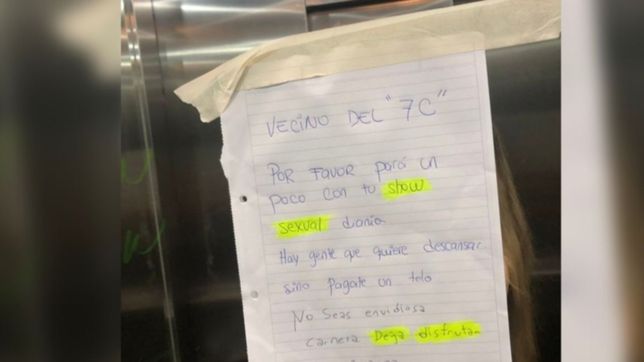 VECINO DEL "7C"
POR FAVOR pará un
poco con tu show
sexual diario
Hay gente que quiere descansar
sino pagate un telo
No Seas envidiosa
carnera Deja disfrutar